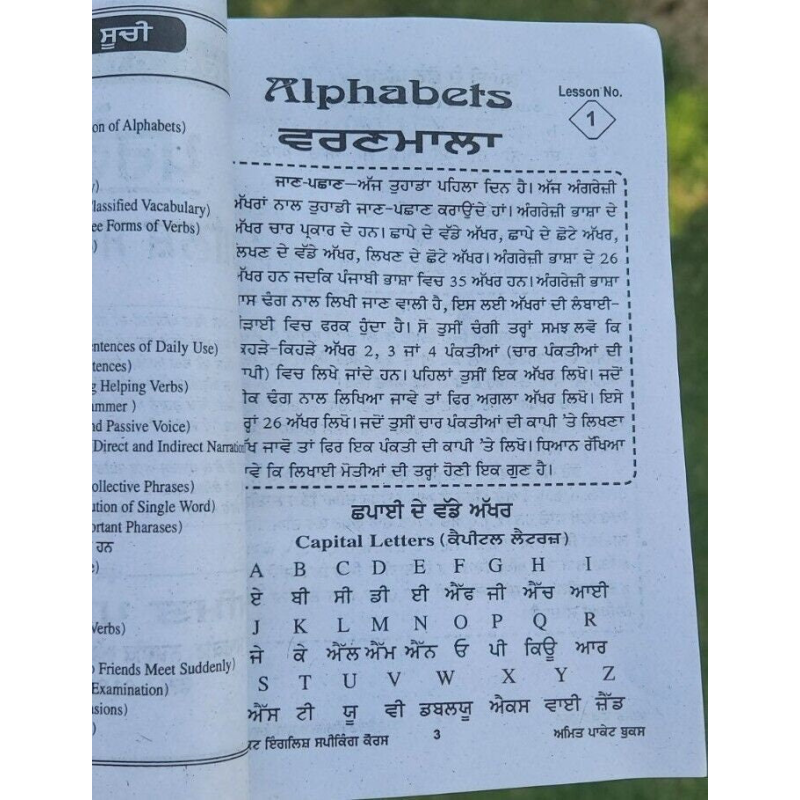 ਸੂਚੀ
on of Alphabets)
y)
lassified Vacabulary)
ee Forms of Verbs)
)
entences of Daily Use)
tences)
g Helping Verbs)
ammer )
nd Passive Voice)
Direct and Indirect Narration
ollective Phrases)
ution of Single Word)
ortant Pharases)
ਹਨ
e)
Verbs)
o Friends Meet Suddenly)
Examination)
sions)
)
Alphabets
Lesson No.
1
ਵਰਣਮਾਲਾ
ਜਾਣ-ਪਛਾਣ—ਅੱਜ ਤੁਹਾਡਾ ਪਹਿਲਾ ਦਿਨ ਹੈ। ਅੱਜ ਅੰਗਰੇਜ਼ੀ
ਅੱਖਰਾਂ ਨਾਲ ਤੁਹਾਡੀ ਜਾਣ-ਪਛਾਣ ਕਰਾਉਂਦੇ ਹਾਂ। ਅੰਗਰੇਜ਼ੀ ਭਾਸ਼ਾ ਦੇ
ਅੱਖਰ ਚਾਰ ਪ੍ਰਕਾਰ ਦੇ ਹਨ। ਛਾਪੇ ਦੇ ਵੱਡੇ ਅੱਖਰ, ਛਾਪੇ ਦੇ ਛੋਟੇ ਅੱਖਰ,
ਲਿਖਣ ਦੇ ਵੱਡੇ ਅੱਖਰ, ਲਿਖਣ ਦੇ ਛੋਟੇ ਅੱਖਰ। ਅੰਗਰੇਜ਼ੀ ਭਾਸ਼ਾ ਦੇ 26
ਅੱਖਰ ਹਨ ਜਦਕਿ ਪੰਜਾਬੀ ਭਾਸ਼ਾ ਵਿਚ 35 ਅੱਖਰ ਹਨ। ਅੰਗਰੇਜ਼ੀ ਭਾਸ਼ਾ
ਾਸ ਢੰਗ ਨਾਲ ਲਿਖੀ ਜਾਣ ਵਾਲੀ ਹੈ, ਇਸ ਲਈ ਅੱਖਰਾਂ ਦੀ ਲੰਬਾਈ-
ੜਾਈ ਵਿਚ ਫਰਕ ਹੁੰਦਾ ਹੈ। ਸੋ ਤੁਸੀਂ ਚੰਗੀ ਤਰ੍ਹਾਂ ਸਮਝ ਲਵੋ ਕਿ
ਕਿਹੜੇ-ਕਿਹੜੇ ਅੱਖਰ 2, 3 ਜਾਂ 4 ਪੰਕਤੀਆਂ (ਚਾਰ ਪੰਕਤੀਆਂ ਦੀ
ਾਪੀ) ਵਿਚ ਲਿਖੇ ਜਾਂਦੇ ਹਨ। ਪਹਿਲਾਂ ਤੁਸੀਂ ਇਕ ਅੱਖਰ ਲਿਖੋ। ਜਦੋਂ
ੀਕ ਢੰਗ ਨਾਲ ਲਿਖਿਆ ਜਾਵੇ ਤਾਂ ਫਿਰ ਅਗਲਾ ਅੱਖਰ ਲਿਖੋ। ਇਸੇ
ਰ੍ਹਾਂ 26 ਅੱਖਰ ਲਿਖੋ। ਜਦੋਂ ਤੁਸੀਂ ਚਾਰ ਪੰਕਤੀਆਂ ਦੀ ਕਾਪੀ 'ਤੇ ਲਿਖਣਾ
ੱਖ ਜਾਵੋ ਤਾਂ ਫਿਰ ਇਕ ਪੰਕਤੀ ਦੀ ਕਾਪੀ 'ਤੇ ਲਿਖੋ। ਧਿਆਨ ਰੱਖਿਆ
ਾਵੇ ਕਿ ਲਿਖਾਈ ਮੋਤੀਆਂ ਦੀ ਤਰ੍ਹਾਂ ਹੋਣੀ ਇਕ ਗੁਣ ਹੈ।
ਛਪਾਈ ਦੇ ਵੱਡੇ ਅੱਖਰ
Capital Letters (ਕੈਪੀਟਲ ਲੈਟਰਜ਼)
A B C D E F G H I
ਏ ਬੀ ਸੀ ਡੀ ਈ ਐੱਫ ਜੀ ਐੱਚ ਆਈ
J K L M N O P Q R
ਜੇ ਕੇ ਐੱਲ ਐੱਮ ਐੱਨ ਓ ਪੀ ਕਿਊ ਆਰ
S T U V W X Y Z
ਐੱਸ ਟੀ ਯੂ ਵੀ ਡਬਲਯੂ ਐਕਸ ਵਾਈ ਜ਼ੈੱਡ
ਇੰਗਲਿਸ਼ ਸਪੀਕਿੰਗ ਕੋਰਸ 3 ਅਮਿਤ ਪਾਕੇਟ ਬੁਕਸ